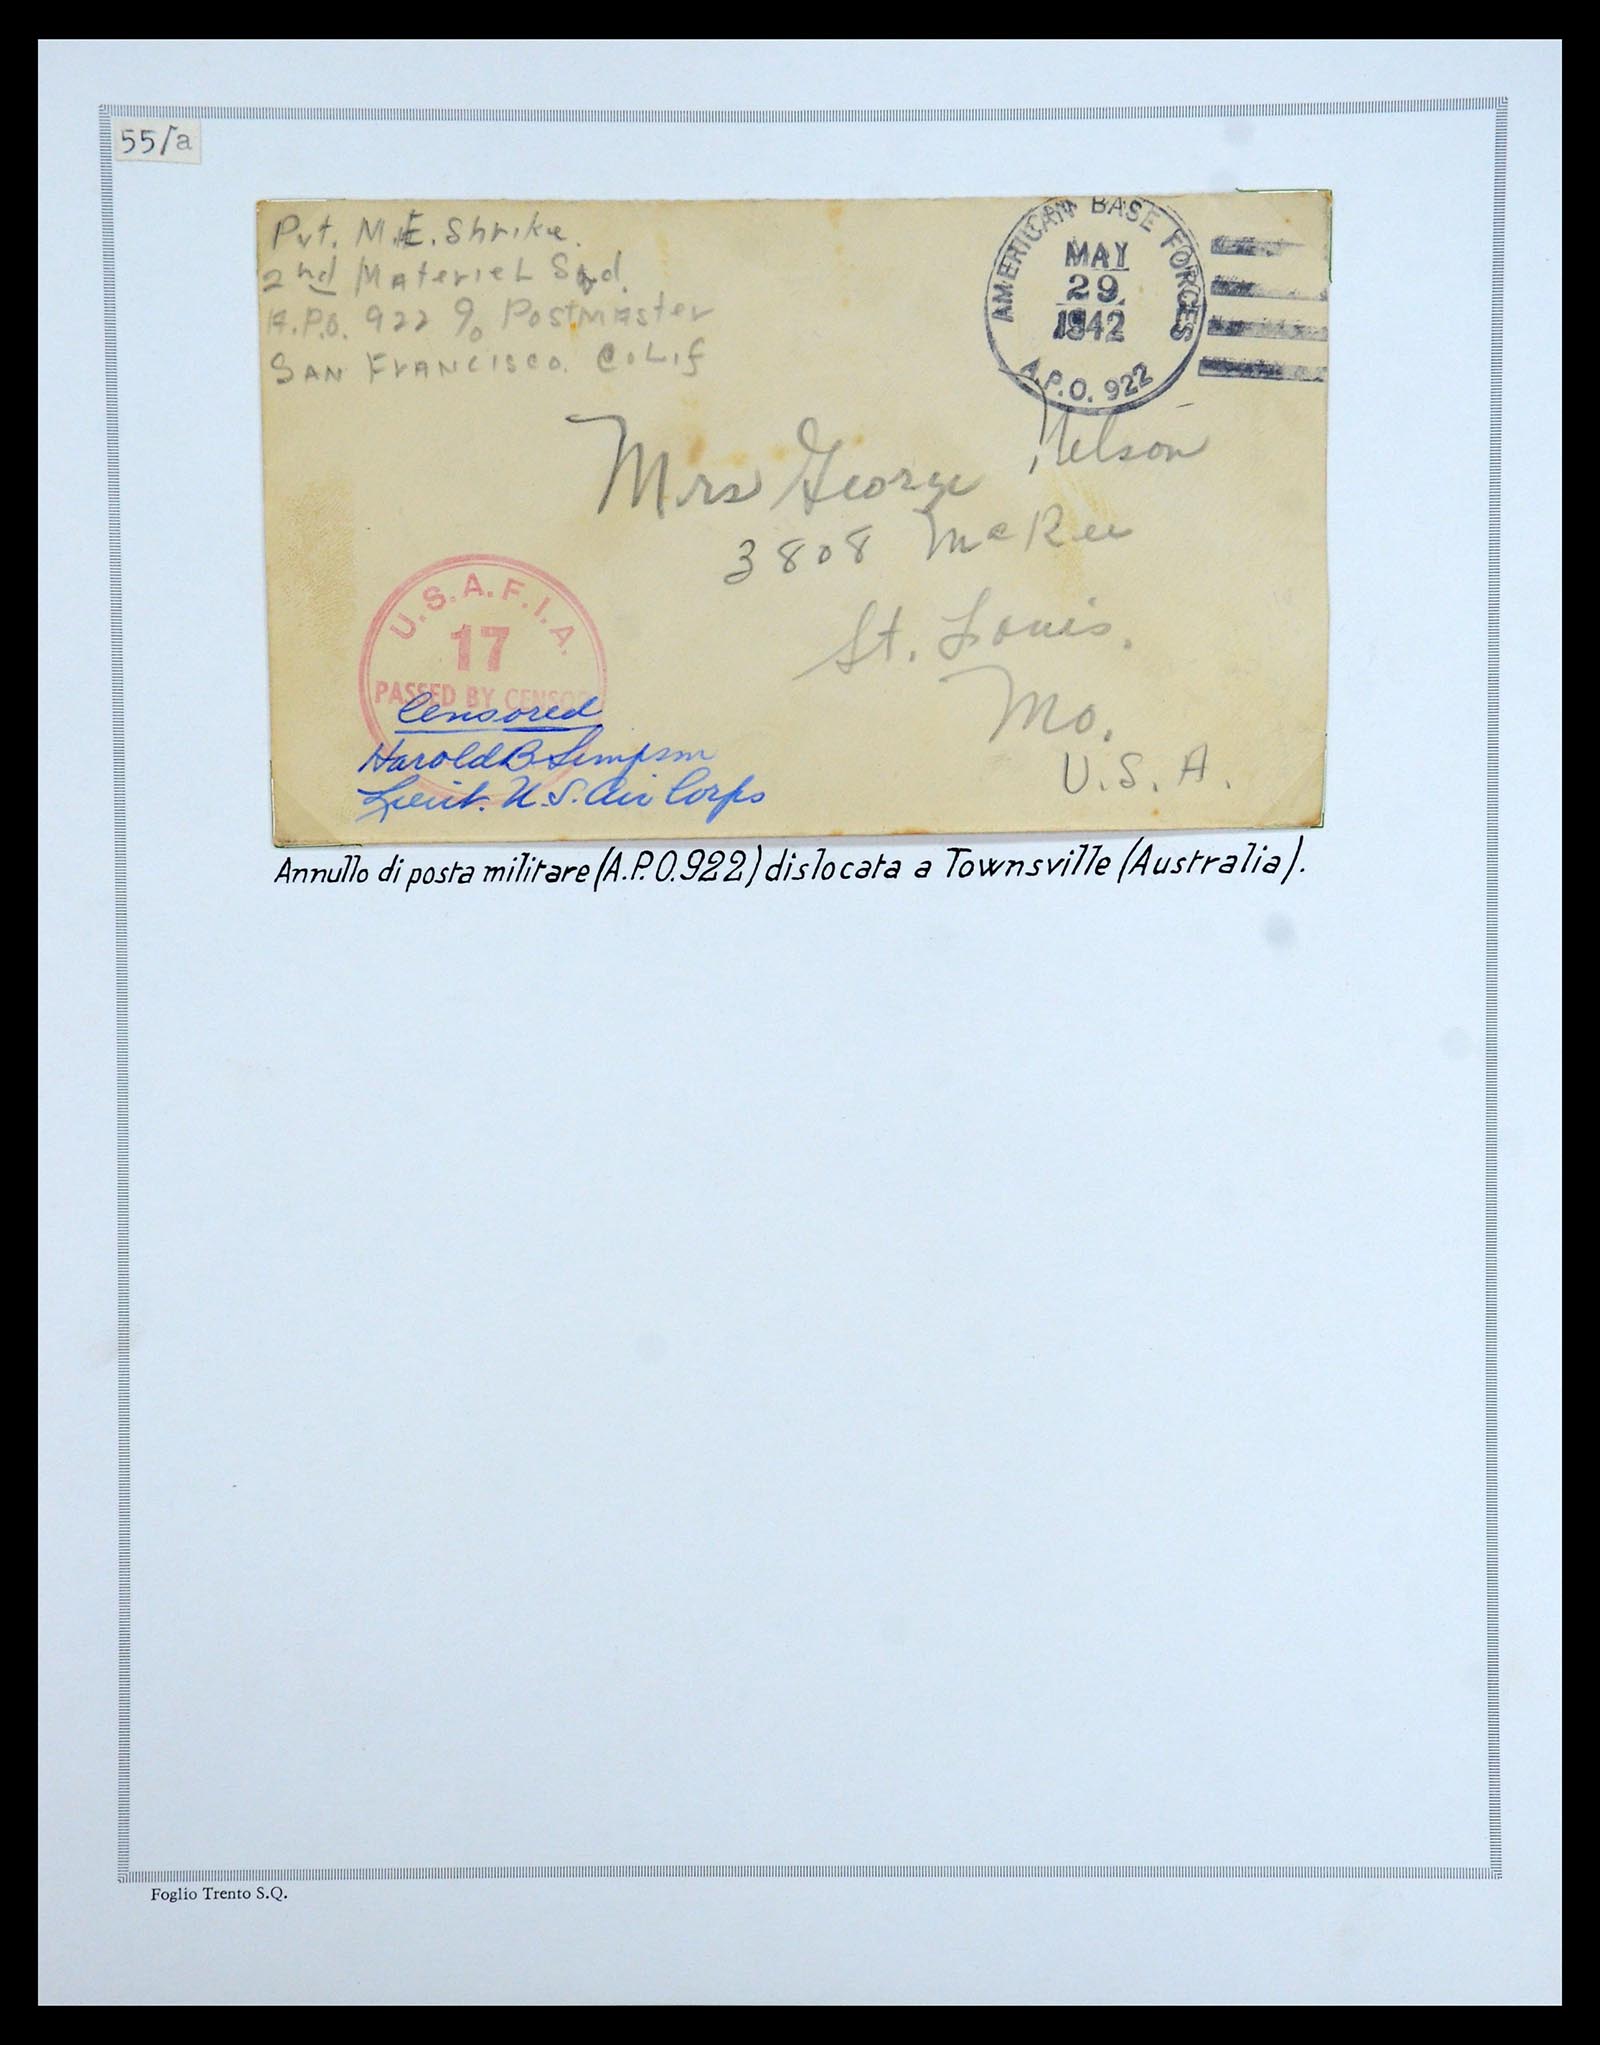 55/a
Pvt. M.E. Shrike.
2nd Materiel Sqd.
A.P.O. 922 % Postmaster
San Francisco. Calif
AMERICAN BASE FORCES
MAY
29
1942
A.P.O. 922
Mrs George Nelson
3808 McRee
St. Louis.
Mo.
U.S.A.
U.S.A.F.I.A.
17
PASSED BY CENSOR
Censored
Harold B Simpson
Lieut. U.S. Air Corps
Annullo di posta militare (A.P.O.922) dislocata a Townsville (Australia).
Foglio Trento S.Q.